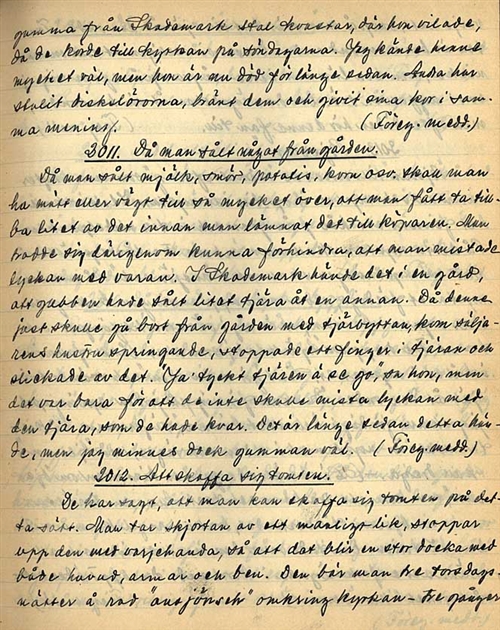 gumma från Skademark stal kvastar, där hon vilade,
då de körde till kyrkan på söndagarna. Jag kände henne
mycket väl, men hon är nu död för länge sedan. Andra har
stulit disktrasorna, bränt dem och givit sina kor i sam-
ma mening. (Föreg. medd.)
2011. Då man sålt något från gården.
Då man sålt mjölk, smör, potatis, korn osv. skall man
ha mätt eller vägt till så mycket över, att man fått ta till-
ba litet av det innan man lämnat det till köparen. Man
trodde sig därigenom kunna förhindra, att man mistade
lyckan med varan. I Skademark hände det i en gård,
att gubben hade sålt litet tjära åt en annan. Då denne
just skulle gå bort från gården med tjärbyttan, kom sälja-
rens hustru springande, stoppade ett finger i tjäran och
slickade av det. "Ja tyckt tjären å se go, sa hon, men
det var bara för att de inte skulle mista lyckan med
den tjära, som de hade kvar. Det är länge sedan detta hän-
de, men jag minnes dock gumman väl. (Föreg. medd.)
2012. Att skaffa sig tomten.
De har sagt, att man kan skaffa sig tomten på det-
ta sätt. Man tar skjortan av ett manligt lik, stoppar
upp den med varjehanda, så att det blir en stor docka med
både huvud, armar och ben. Den bär man tre torsdags-
nätter å rad "ansjönsch" omkring kyrkan - tre gånger